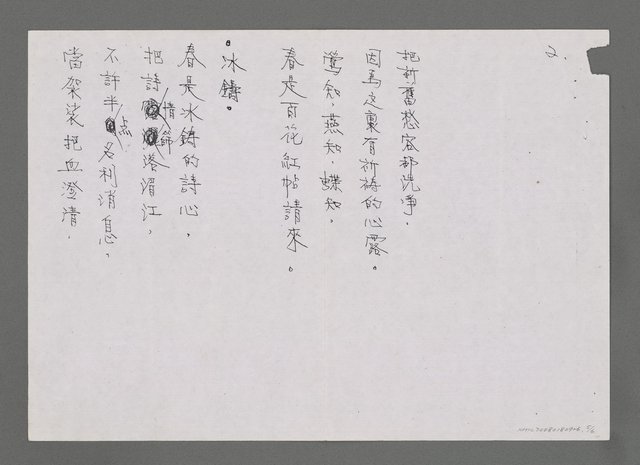 2.
把新舊愁容都洗淨.
因為它裏有祈禱的心露。
鶯知.燕知.蝶知.
春是百花紅帖請來。
。冰鑄。
春是冰鑄的詩心,
把詩情篩落湄江,
不許半点名利消息,
當袈裟把血澄清.